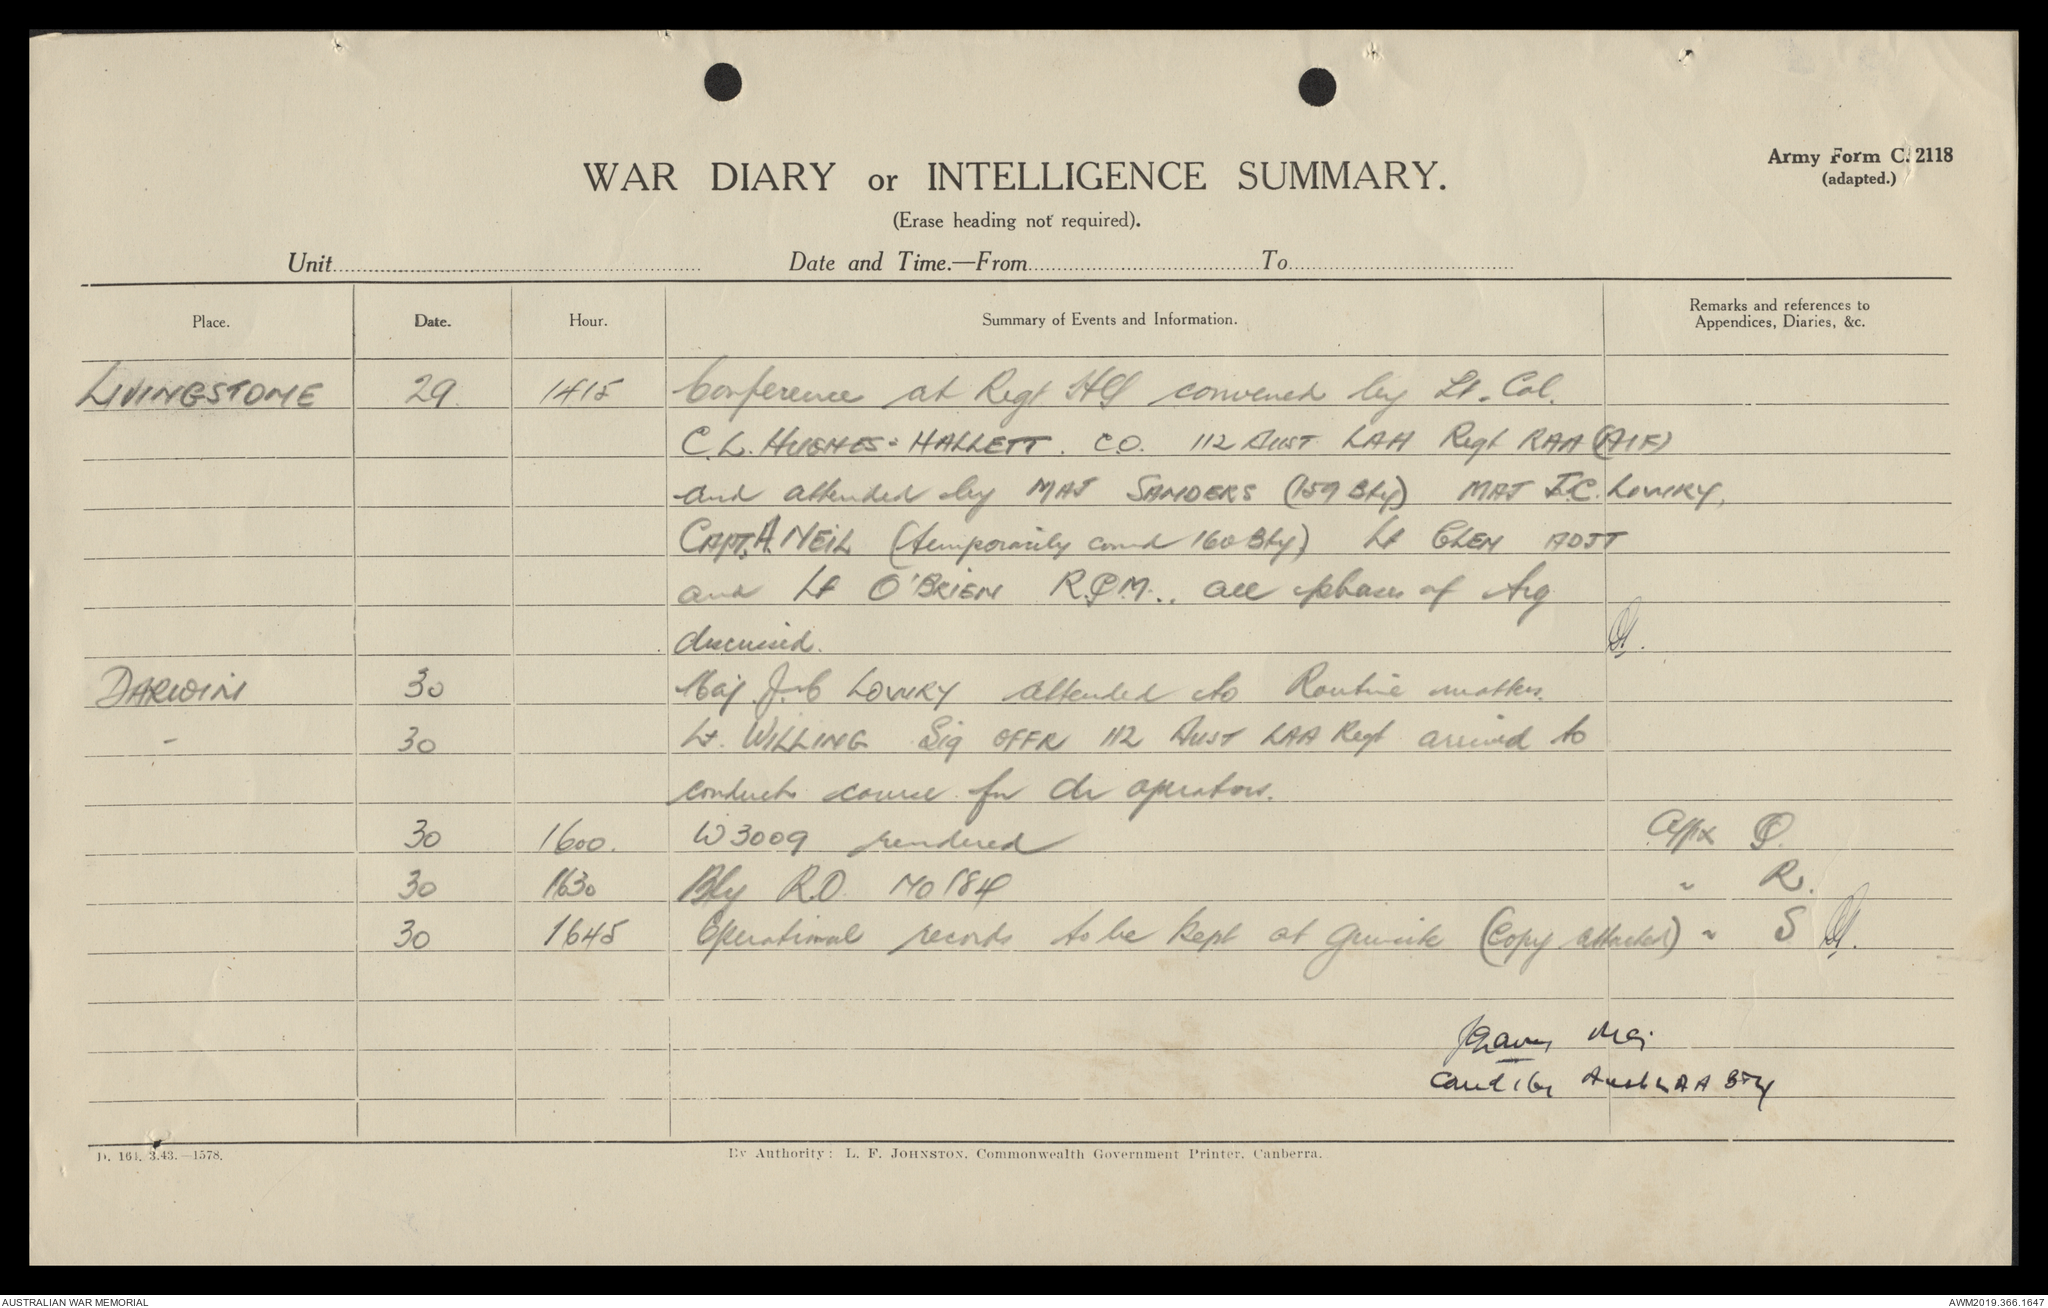 WAR DIARY or INTELLIGENCE SUMMARY.
Army Form C. 2118
(adapted.)
(Erase heading not required).
Unit Date and Time.—From To
Place. Date. Hour. Summary of Events and Information. Remarks and references to
Appendices, Diaries, &c.
LIVINGSTONE 29 1415 Conference at Regt HQ convened by Lt. Col.
C.L. HUGHES-HALLETT. CO. 112 AUST LAA Regt RAA (AIF)
and attended by MAJ SANDERS (159 Bty) MAJ J.C. LOWRY,
CAPT. A. NEIL (temporarily comd 160 Bty) Lt GLEN ADJT
and Lt O'BRIEN R.Q.M.. all phases of trg
discussed.
DARWIN 30 Maj J.C LOWRY attended to Routine matters.
" 30 Lt. WILLING Sig OFFR 112 AUST LAA Regt arrived to
conduct course for DR operators.
30 1600. W3009 rendered Appx Q.
30 1630 Bty R.O. NO 184 " R.
30 1645 Operational records to be kept at gunsite (Copy attached) " S
Maj
Aust LAA Bty
D. 161. 3.43.—1578.
By Authority: L. F. JOHNSTON, Commonwealth Government Printer, Canberra.
AUSTRALIAN WAR MEMORIAL
AWM2019.366.1647